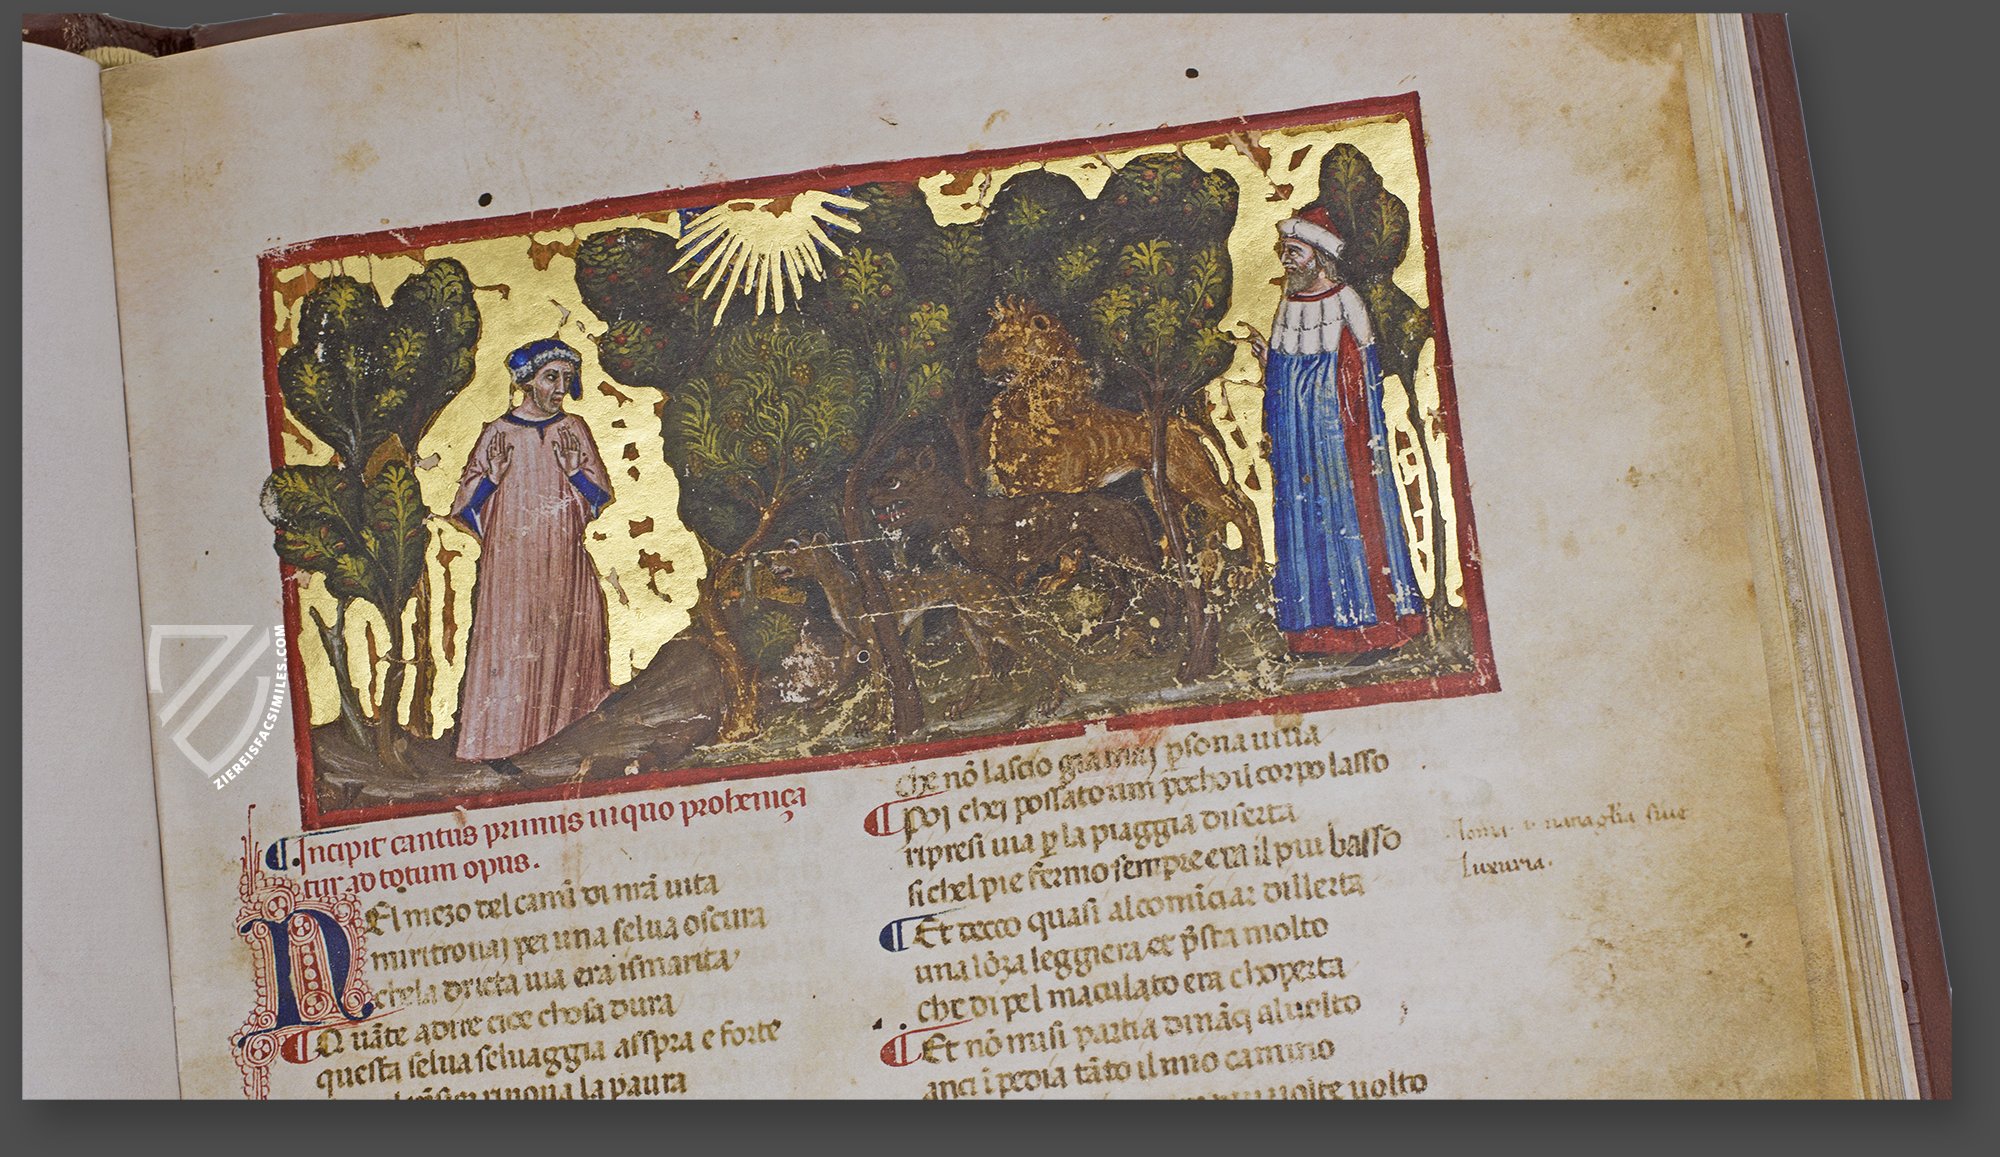 Incipit cantus primus in quo prohemiça
tur ad totum opus.
NEl mezo del camĩ di nrã uita
mi ritrouaj per una selua oscura
che la dricta uia era ismarita
Quãte a dire cioe chosa dura
questa selua seluaggia asspra e forte
rinoua la paura
che nõ lascio già maj psona uiua
Poj chei possato um pocho il corpo lasso
ripresi uia p la piaggia diserta
si chel pie fermo sempre era il piu basso
Et eccco quasi al comĩciar dillerta
una lõza leggiera et psta molto
che di pel maculato era choperta
Et nõ mi si partia dinãçi al uolto
anci ĩpedia tãto il mio camino
uolte uolto
siue
luxuria.
ZIEREISFACSIMILES.COM